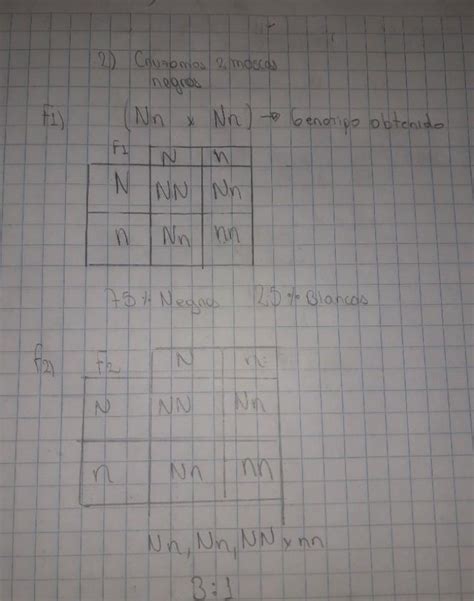 2) Cruzamos 2 moscas
negras
F1) (Nn x Nn) → Genotipo obtenido
F1 N n
N NN Nn
n Nn nn
75% Negros 25% Blancas
f2) F2 N n
N NN Nn
n Nn nn
Nn, Nn, NN y nn
3:1